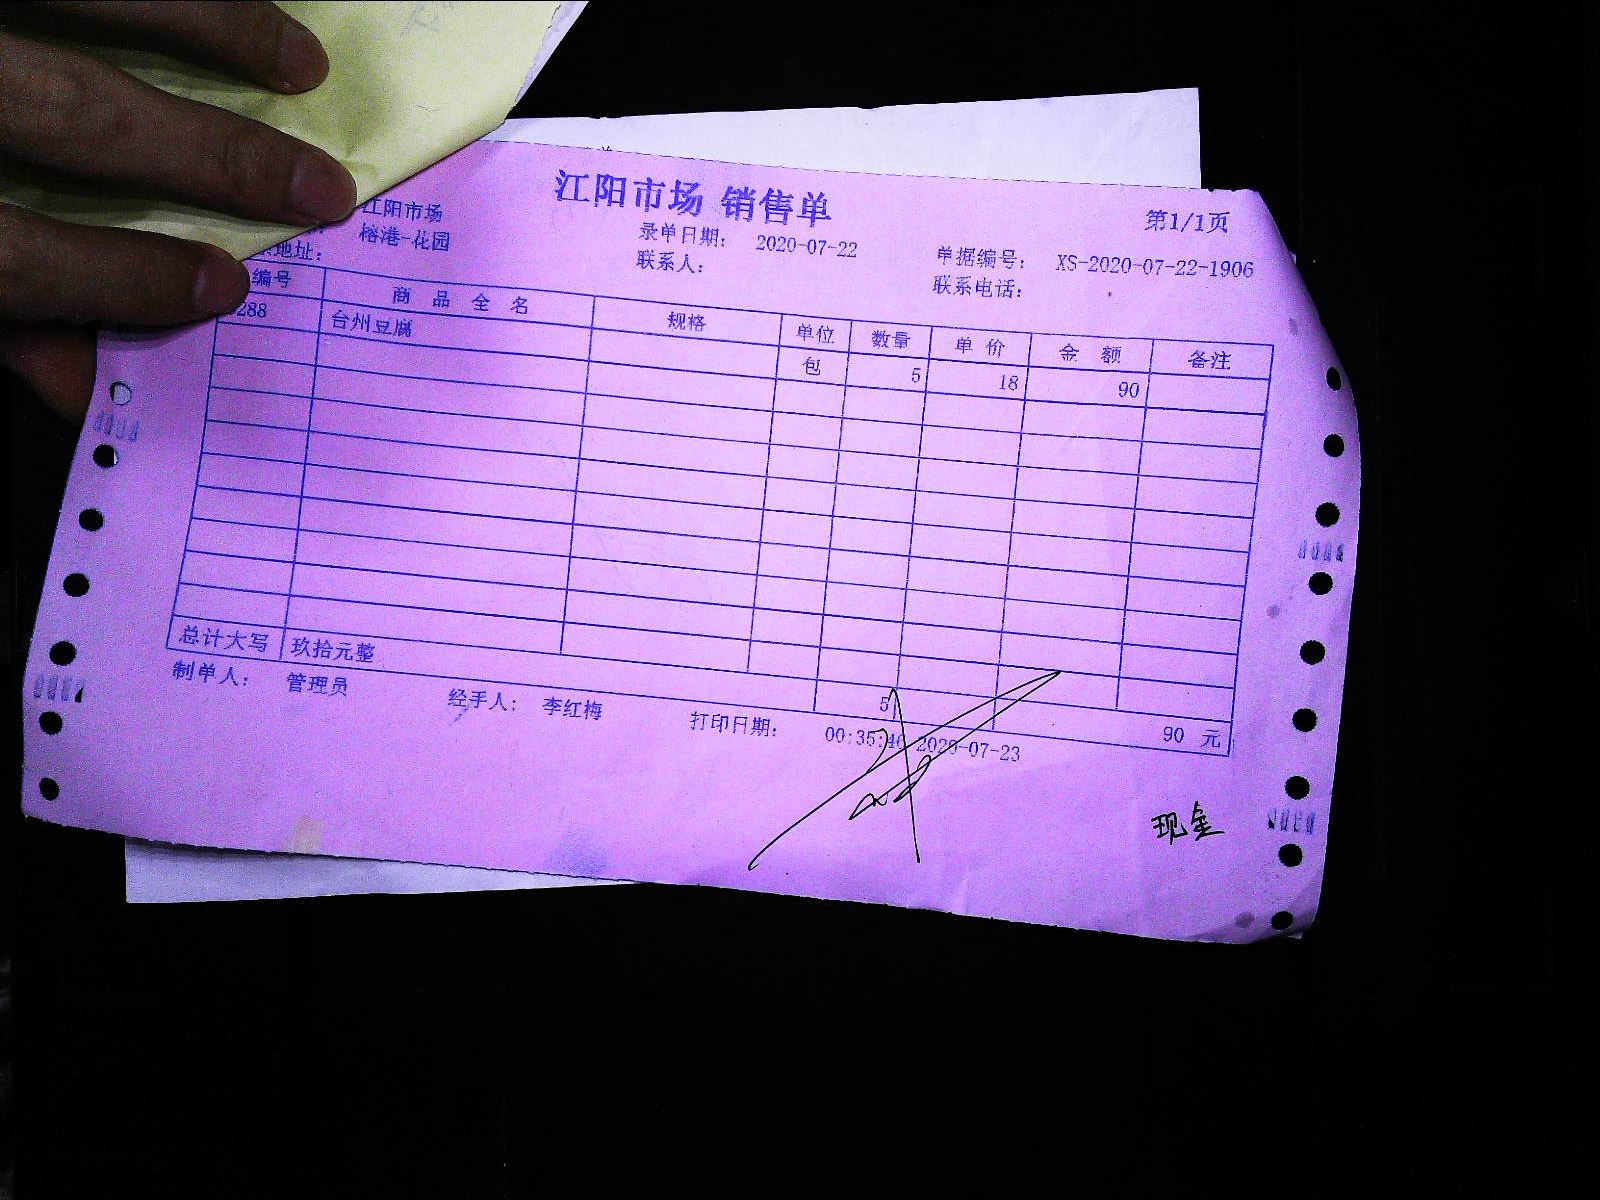 江阳市场 销售单
第1/1页
江阳市场
榕港-花园 录单日期: 2020-07-22 单据编号: XS-2020-07-22-1906
地址: 联系人: 联系电话:
编号 商品全名 规格 单位 数量 单价 金额 备注
288 台州豆腐 包 5 18 90
总计大写 玖拾元整 5 90 元
制单人: 管理员 经手人: 李红梅 打印日期: 00:35:40 2020-07-23
现金